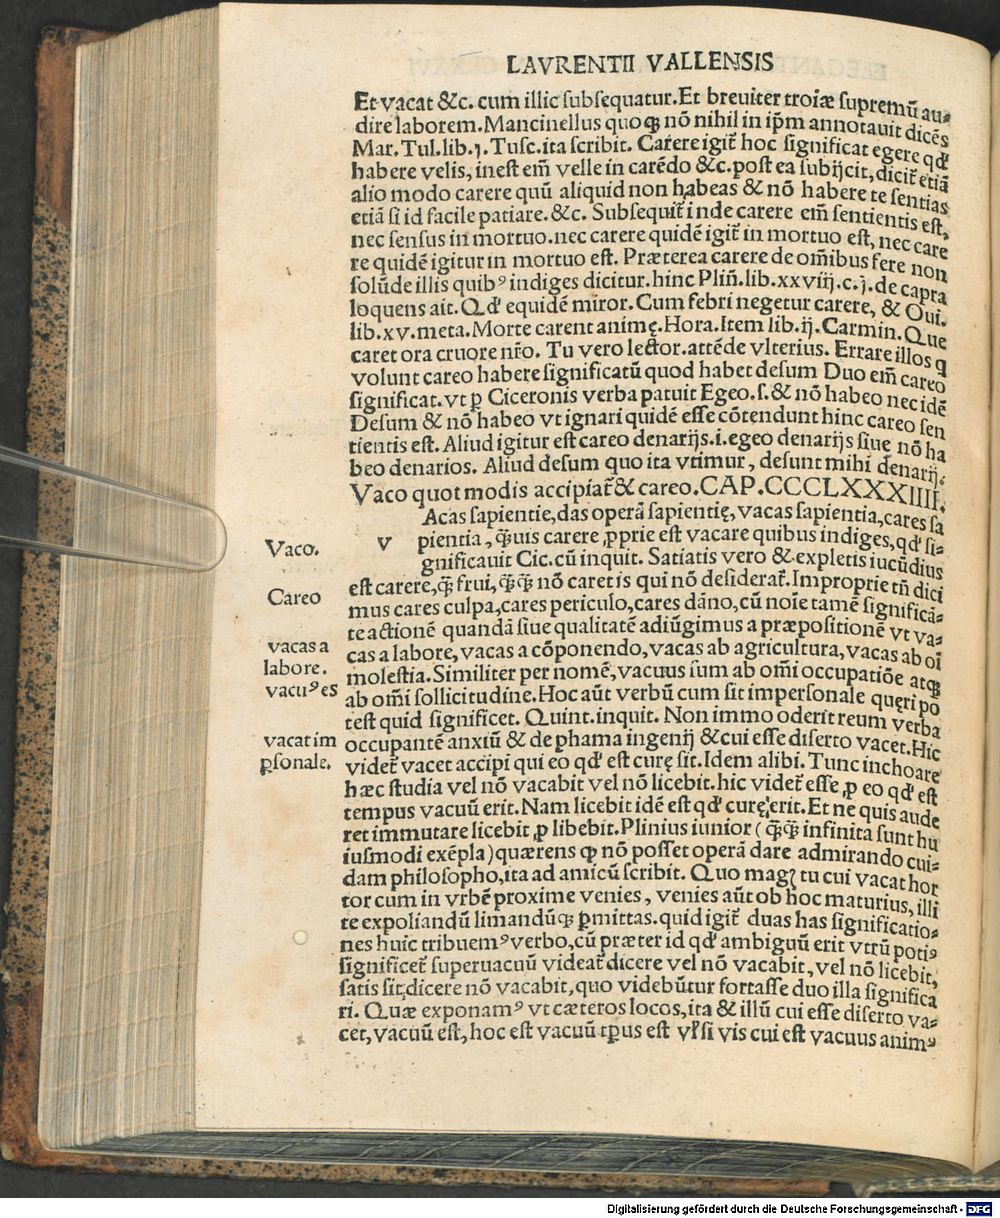 LAVRENTII VALLENSIS
Et vacat &c. cum illic ſubſequatur. Et breuiter troiæ ſupremũ au⸗
dire laborem. Mancinellus quoqꝫ nõ nihil in ip̃m annotauit dicẽs
Mar. Tul. lib. j. Tuſc. ita ſcribit. Carere igit̃ hoc ſignificat egere qđ
habere velis, ineſt em̃ velle in carẽdo &c. poſt ea ſubijcit, dicit̃ etiã
alio modo carere quũ aliquid non habeas & nõ habere te ſentias
etiã ſi id facile patiare. &c. Subſequit̃ inde carere em̃ ſentientis eſt,
nec ſenſus in mortuo. nec carere quidẽ igit̃ in mortuo eſt, nec care
re quidẽ igitur in mortuo eſt. Præterea carere de om̃ibus fere non
ſolũ de illis quibꝰ indiges dicitur. hinc Plin̄. lib. xxviij. c. j. de capra
loquens ait. Qđ equidẽ miror. Cum febri negetur carere, & Oui.
lib. xv. meta. Morte carent animę. Hora. Item lib. ij. Carmin. Que
caret ora cruore nr̃o. Tu vero lector. attẽde vlterius. Errare illos q
volunt careo habere ſignificatũ quod habet deſum Duo em̃ careo
ſignificat. vt ꝑ Ciceronis verba patuit Egeo. ſ. & nõ habeo nec idẽ
Deſum & nõ habeo vt ignari quidẽ eſſe cõtendunt hinc careo ſen
tientis eſt. Aliud igitur eſt careo denarijs. i. egeo denarijs ſiue nõ ha
beo denarios. Aliud deſum quo ita vtimur, deſunt mihi denarij.
Vaco quot modis accipiat̃ & careo. CAP. CCCLXXXIIII.
Acas ſapientie, das operã ſapientię, vacas ſapientia, cares ſa
Vaco. v pientia, q̃uis carere ꝓprie eſt vacare quibus indiges, qđ ſi⸗
gnificauit Cic. cũ inquit. Satiatis vero & expletis iucũdius
Careo eſt carere, q̃ frui, q̃q̃ nõ caret is qui nõ deſiderat̃. Improprie tñ dici
mus cares culpa, cares periculo, cares dãno, cũ noĩe tamẽ ſignificã⸗
te actionẽ quandã ſiue qualitatẽ adiũgimus a præpoſitionẽ vt va⸗
vacas a cas a labore, vacas a cõponendo, vacas ab agricultura, vacas ab oĩ
labore. moleſtia. Similiter per nomẽ, vacuus ſum ab om̃i occupatiõe atqꝫ
vacuꝰ es ab om̃i ſollicitudine. Hoc aũt verbũ cum ſit imperſonale quęri po
teſt quid ſignificet. Quint. inquit. Non immo oderit reum verba
vacat im occupantẽ anxiũ & de phama ingenij & cui eſſe diſerto vacet. Hic
ꝑſonale. videt̃ vacet accipi qui eo qđ eſt curę ſit. Idem alibi. Tunc inchoare
hæc ſtudia vel nõ vacabit vel nõ licebit. hic videt̃ eſſe ꝓ eo qđ eſt
tempus vacuũ erit. Nam licebit idẽ eſt qđ curę erit. Et ne quis aude
ret immutare licebit ꝓ libebit. Plinius iunior (q̃q̃ infinita ſunt hu
iuſmodi exẽpla) quærens ꝙ nõ poſſet operã dare admirando cui⸗
dam philoſopho, ita ad amicũ ſcribit. Quo magꝭ tu cui vacat hor
tor cum in vrbẽ proxime venies, venies aũt ob hoc maturius, illi
te expoliandũ limandũqꝫ ꝑmittas. quid igit̃ duas has ſignificatio⸗
nes huic tribuemꝰ verbo, cũ præter id qđ ambiguũ erit vtrũ potiꝰ
ſignificet̃ ſuperuacuũ videat̃ dicere vel nõ vacabit, vel nõ licebit,
ſatis ſit dicere nõ vacabit, quo videbũtur fortaſſe duo illa ſignifica
ri. Quæ exponamꝰ vt cæteros locos, ita & illũ cui eſſe diſerto va⸗
cet, vacuũ eſt, hoc eſt vacuũ tꝑus eſt vl̃ ſi vis cui eſt vacuus animꝰ
Digitalisierung gefördert durch die Deutsche Forschungsgemeinschaft - DFG